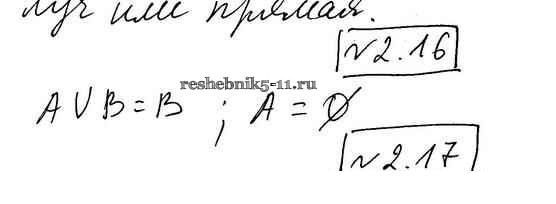 луч или прямая.
№2.16
reshebnik5-11.ru
A ∪ B = B ; A = ∅
№2.17